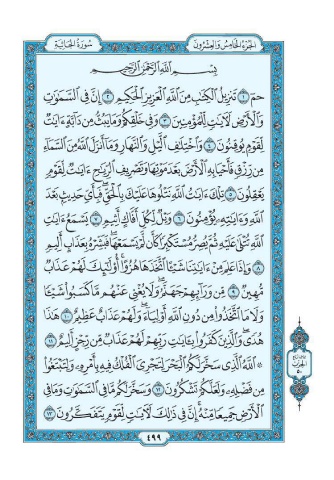 الجزء الخامس والعشرون
سورة الجاثية
بسم الله الرحمن الرحيم
حم ١ تنزيل الكتب من الله العزيز الحكيم ٢ إن في السموت
والأرض لأيت للمؤمنين ٣ وفي خلقكم وما يبث من دابة ءايت
لقوم يوقنون ٤ واختلف اليل والنهار وما أنزل الله من السماء
من رزق فأحيا به الأرض بعد موتها وتصريف الريح ءايت لقوم
يعقلون ٥ تلك ءايت الله نتلوها عليك بالحق فبأي حديث بعد
الله وءايته يؤمنون ٦ ويل لكل أفاك أثيم ٧ يسمع ءايت
الله تتلى عليه ثم يصر مستكبرا كأن لم يسمعها فبشره بعذاب أليم
٨ وإذا علم من ءايتنا شيئا اتخذها هزوا أولئك لهم عذاب
مهين ٩ من ورائهم جهنم ولا يغني عنهم ما كسبوا شيئا
ولا ما اتخذوا من دون الله أولياء ولهم عذاب عظيم ١٠ هذا
هدى والذين كفروا بءايت ربهم لهم عذاب من رجز أليم ١١
۞ الله الذي سخر لكم البحر لتجري الفلك فيه بأمره ولتبتغوا
من فضله ولعلكم تشكرون ١٢ وسخر لكم ما في السموت وما في
الأرض جميعا منه إن في ذلك لأيت لقوم يتفكرون ١٣
الحزب
٥٠
٤٩٩